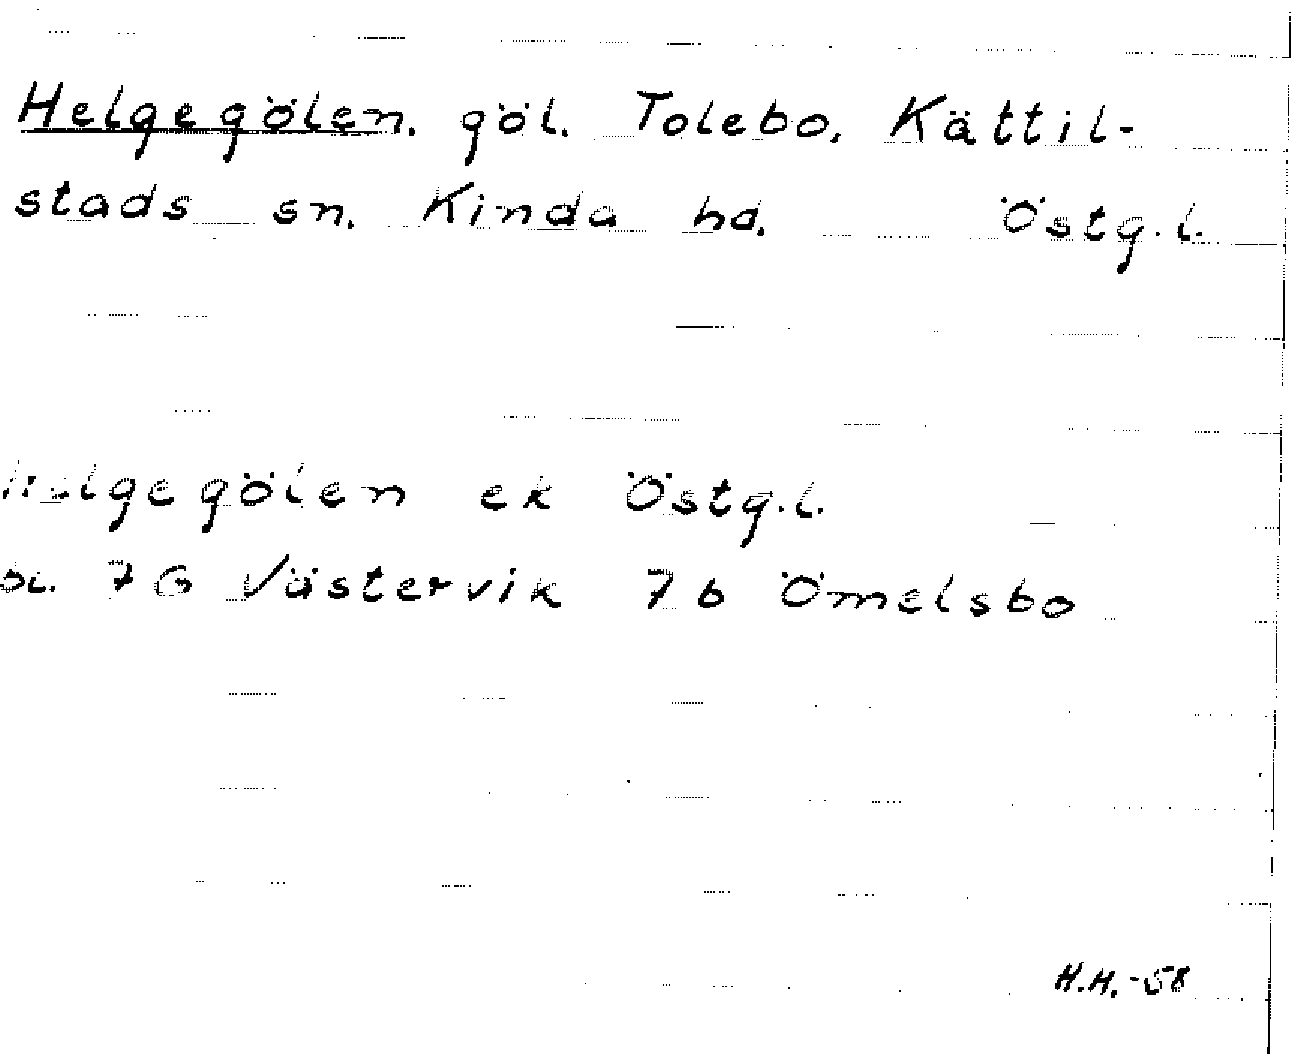 Helgegölen. göl. Tolebo, Kättil-
stads sn. Kinda hd. Östg.l.
Helgegölen ek Östg.l.
bl. 7 G Västervik 7 b Ömelsbo
H.H.-58